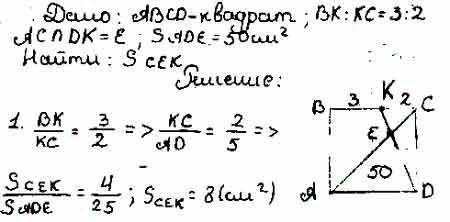 Дано: ABCD-квадрат; BK:KC=3:2
AC∩DK=E; SADE=50см²
Найти: SCEK
Решение:
1. BK/KC = 3/2 => KC/AD = 2/5 =>
SCEK/SADE = 4/25; SCEK=8(см²)
B 3 K 2 C
E
50
A D